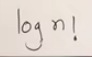 log n!